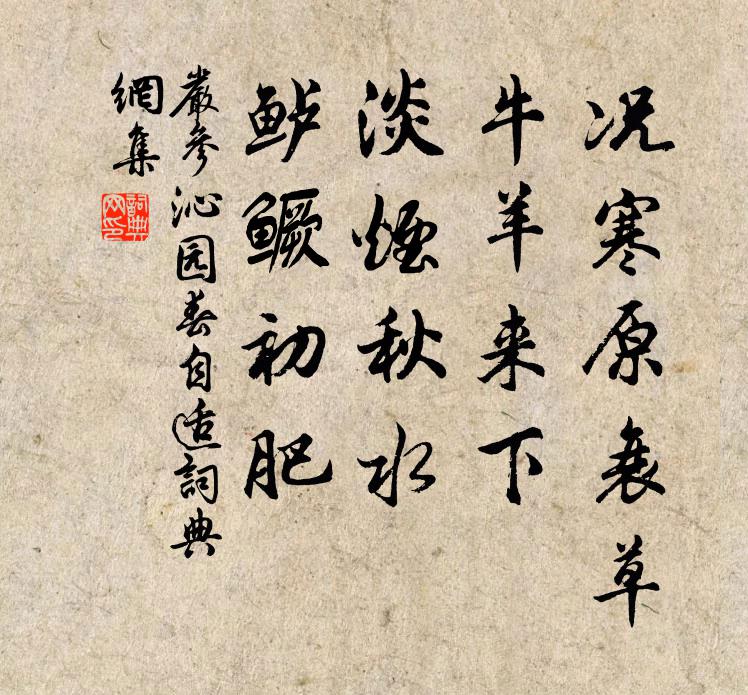 况寒原衰草
牛羊来下
淡烟秋水
鲈鳜初肥
嚴參沁园春自适詞典
網集
詞典
网印